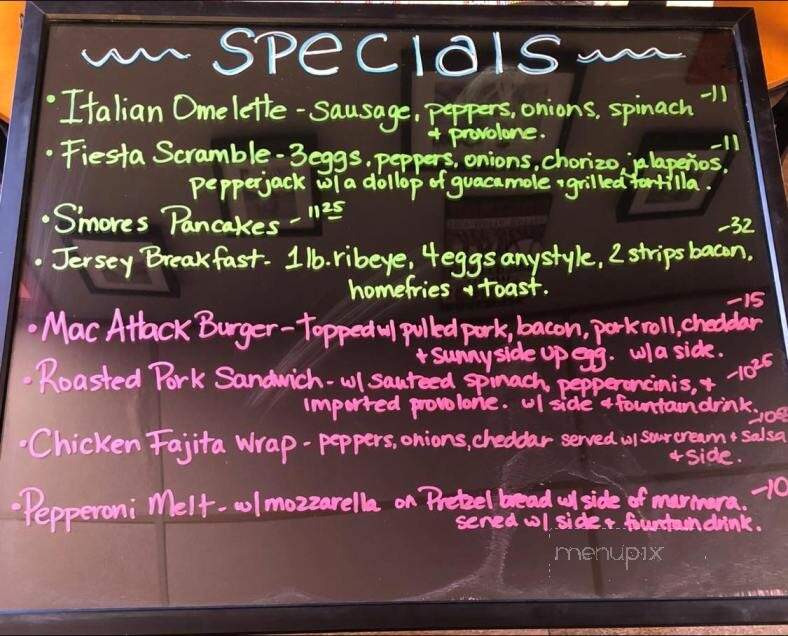 SPECIALS
• Italian Omelette - sausage, peppers, onions, spinach -11
+ provolone.
• Fiesta Scramble - 3 eggs, peppers, onions, chorizo, jalapeños, -11
pepperjack w/ a dollop of guacamole + grilled tortilla.
• S'mores Pancakes - 11 25
• Jersey Breakfast - 1 lb. ribeye, 4 eggs any style, 2 strips bacon, -32
homefries + toast.
• Mac Attack Burger - Topped w/ pulled pork, bacon, pork roll, cheddar -15
+ sunny side up egg. w/ a side.
• Roasted Pork Sandwich - w/ sauteed spinach, pepperoncinis, + -10 25
imported provolone. w/ side + fountain drink.
• Chicken Fajita Wrap - peppers, onions, cheddar served w/ sour cream + salsa
+ side.
• Pepperoni Melt - w/ mozzarella on Pretzel bread w/ side of marinara. -10
served w/ side + fountain drink.
menupix